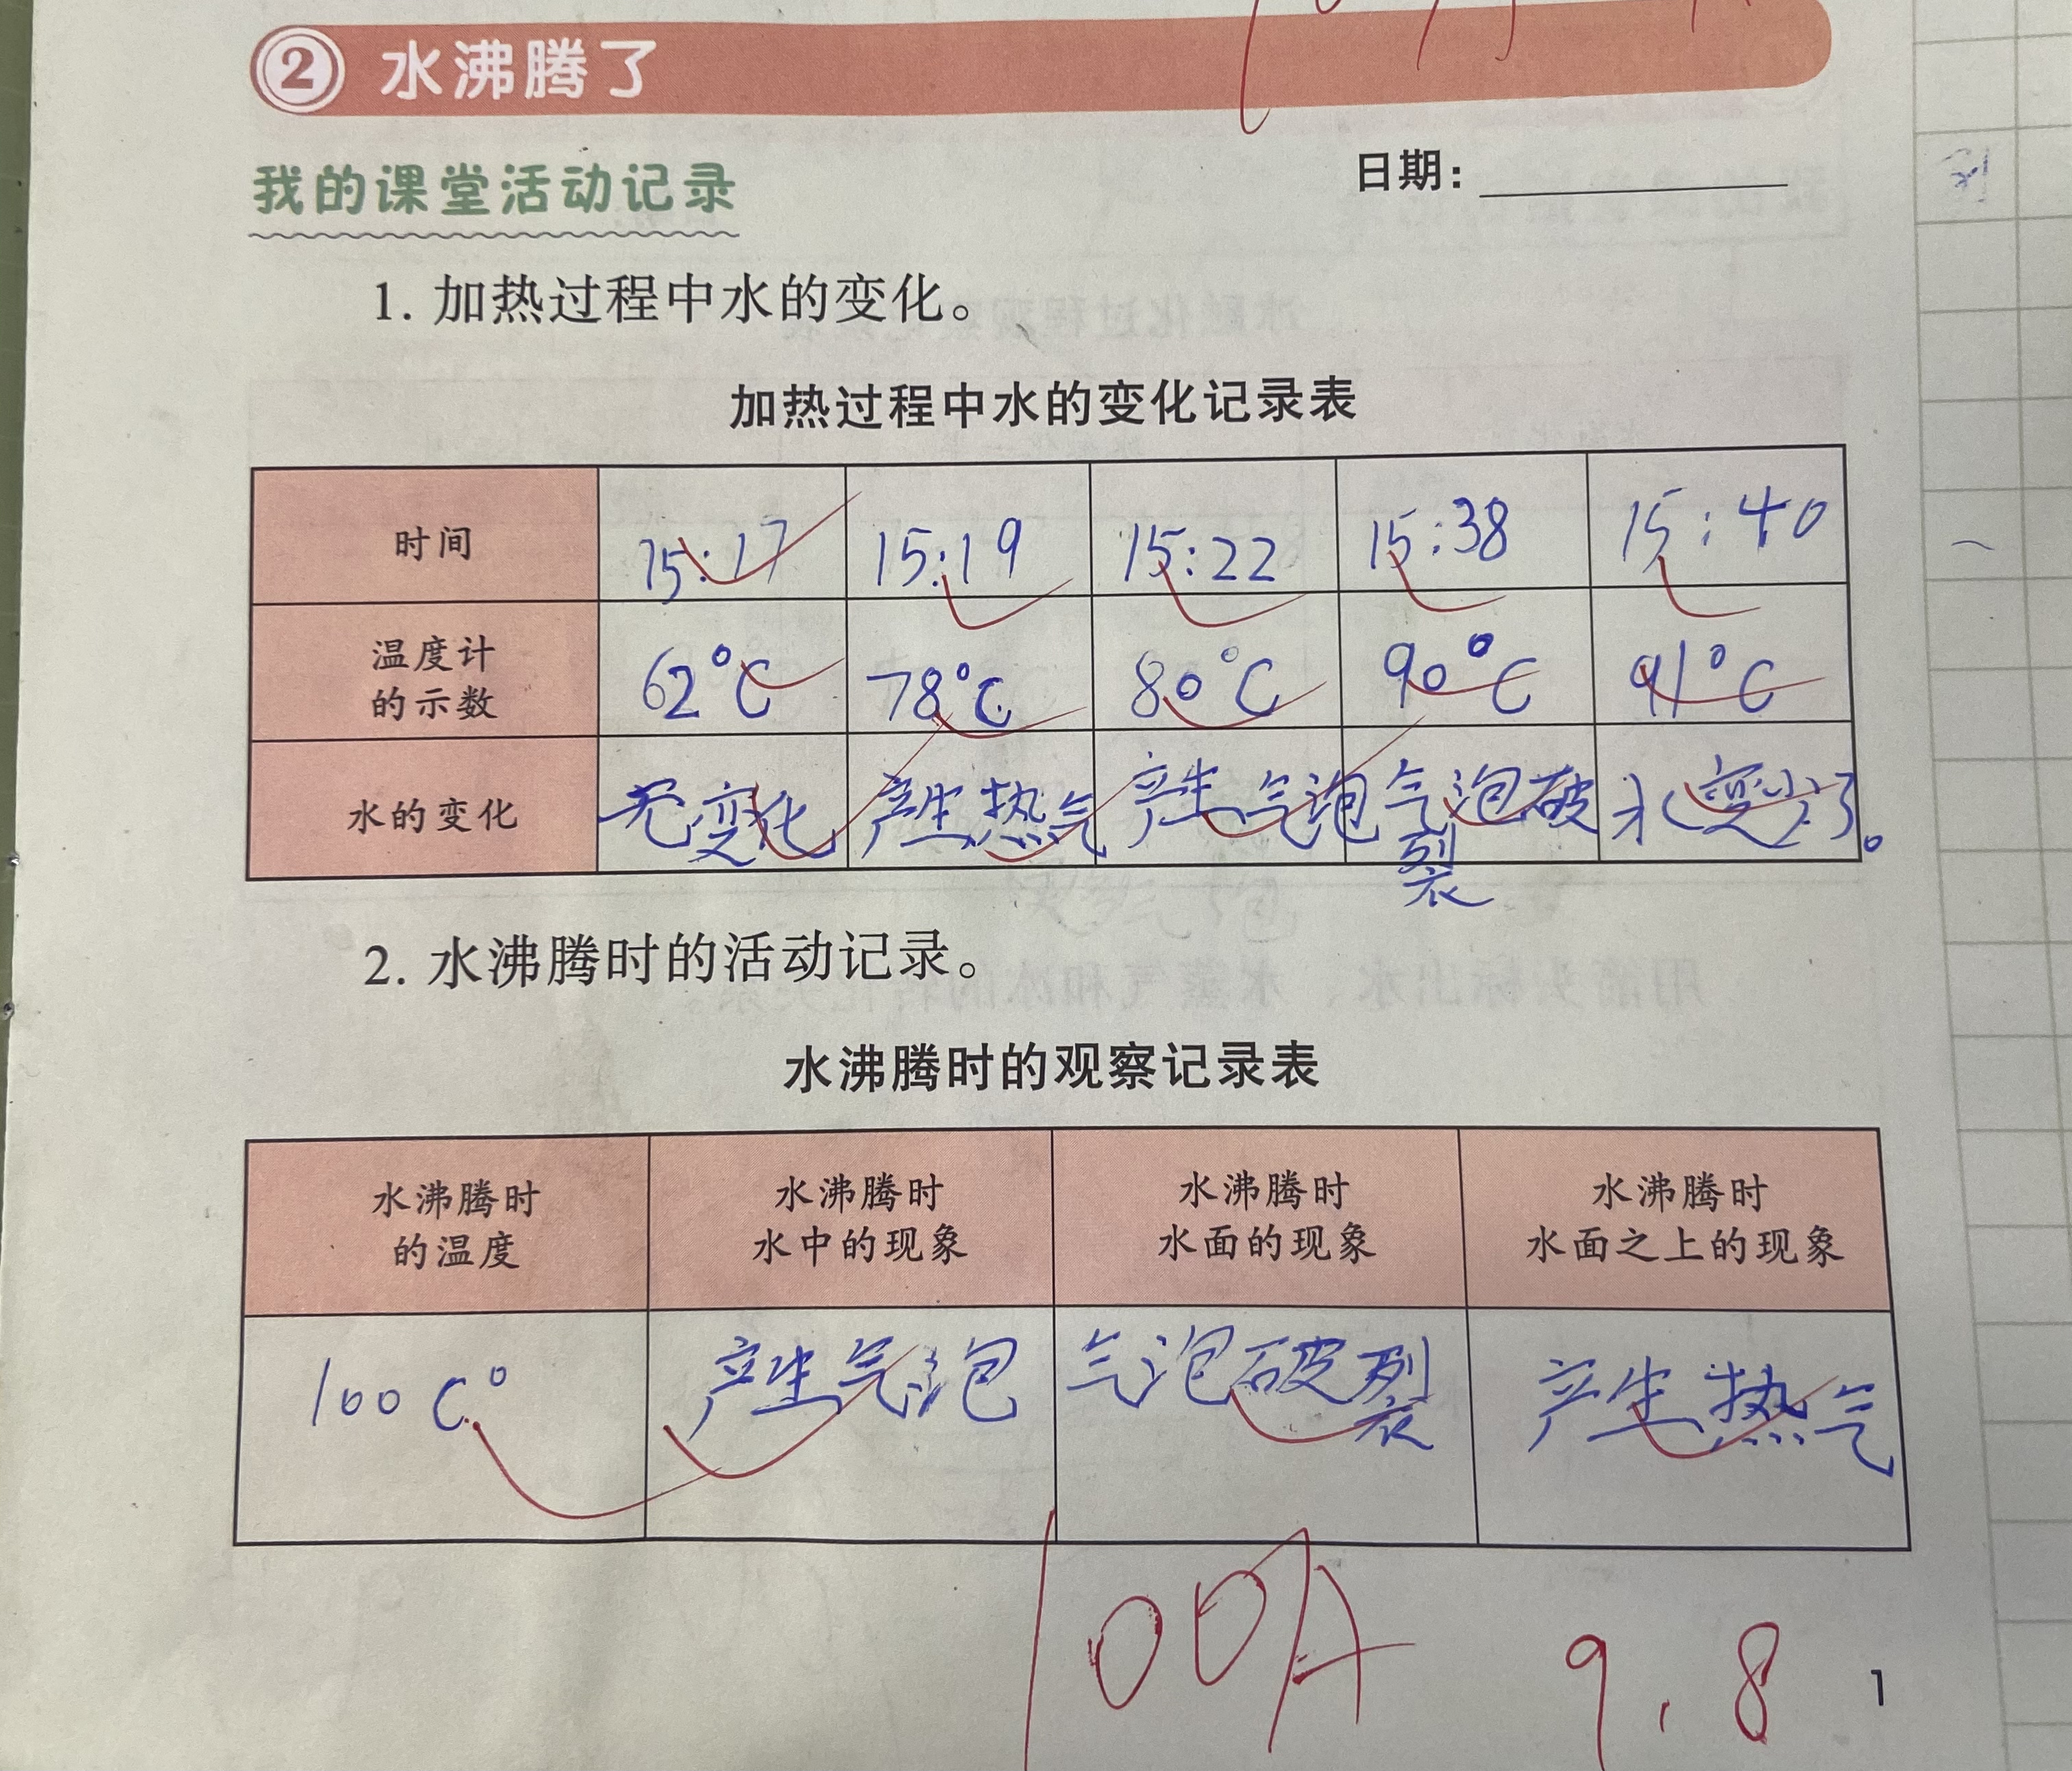 2 水沸腾了
我的课堂活动记录
日期：
1. 加热过程中水的变化。
加热过程中水的变化记录表
时间 15:17 15:19 15:22 15:38 15:40
温度计的示数 62°C 78°C 80°C 90°C 91°C
水的变化 无变化 产生热气 产生气泡 气泡破裂 水变少了。
2. 水沸腾时的活动记录。
水沸腾时的观察记录表
水沸腾时的温度 水沸腾时水中的现象 水沸腾时水面的现象 水沸腾时水面之上的现象
100C° 产生气泡 气泡破裂 产生热气
100A 9.8
1